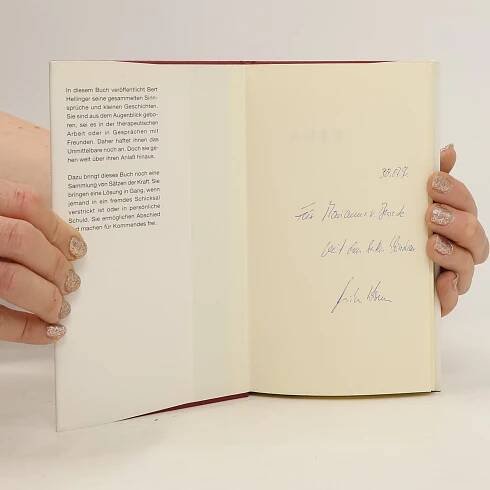 In diesem Buch veröffentlicht Bert
Hellinger seine gesammelten Sinn-
sprüche und kleinen Geschichten.
Sie sind aus dem Augenblick gebo-
ren, sei es in der therapeutischen
Arbeit oder in Gesprächen mit
Freunden. Daher haftet ihnen das
Unmittelbare noch an. Doch sie ge-
hen weit über ihren Anlaß hinaus.
Dazu bringt dieses Buch noch eine
Sammlung von Sätzen der Kraft. Sie
bringen eine Lösung in Gang, wenn
jemand in ein fremdes Schicksal
verstrickt ist oder in persönliche
Schuld. Sie ermöglichen Abschied
und machen für Kommendes frei.
Für